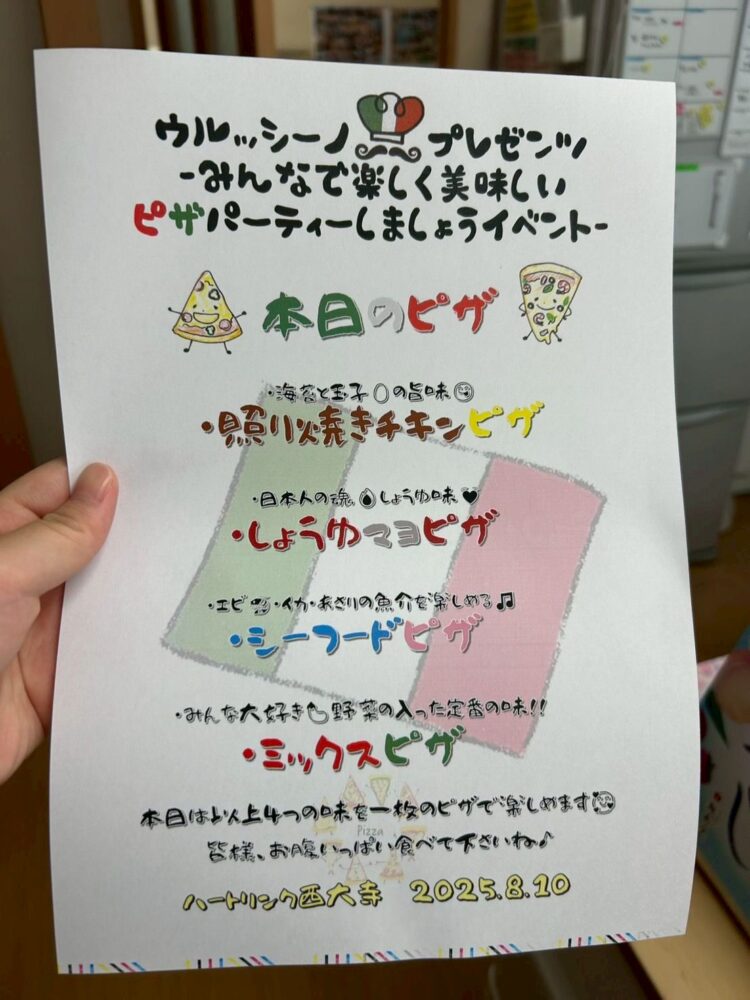 ウルッシーノ プレゼンツ
-みんなで楽しく美味しい
ピザパーティーしましょうイベント-
本日のピザ
・海苔と玉子の旨味
・照り焼きチキンピザ
・日本人の魂しょうゆ味
・しょうゆマヨピザ
・エビ・イカ・あさりの魚介を楽しめる♫
・シーフードピザ
・みんな大好き野菜の入った定番の味!!
・ミックスピザ
本日は以上4つの味を一枚のピザで楽しめます
Pizza
皆様、お腹いっぱい食べて下さいね♪
ハートリンク西大寺 2025.8.10